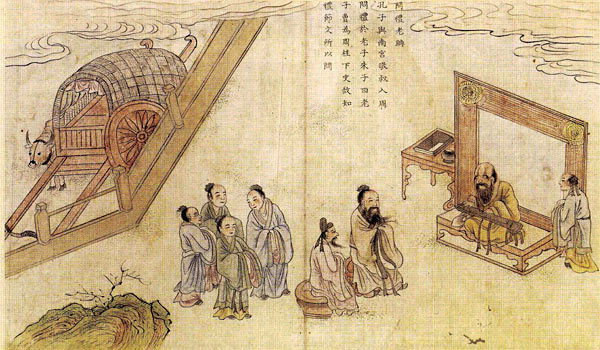 問禮老聃
孔子與南宮敬叔入周
問禮於老子朱子曰老
子曾為周柱下史故知
禮節文所以問